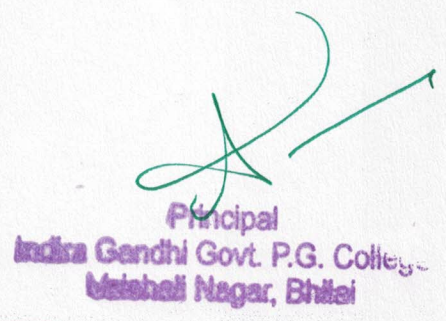 Principal
Indira Gandhi Govt. P.G. College
Vaishali Nagar, Bhilai